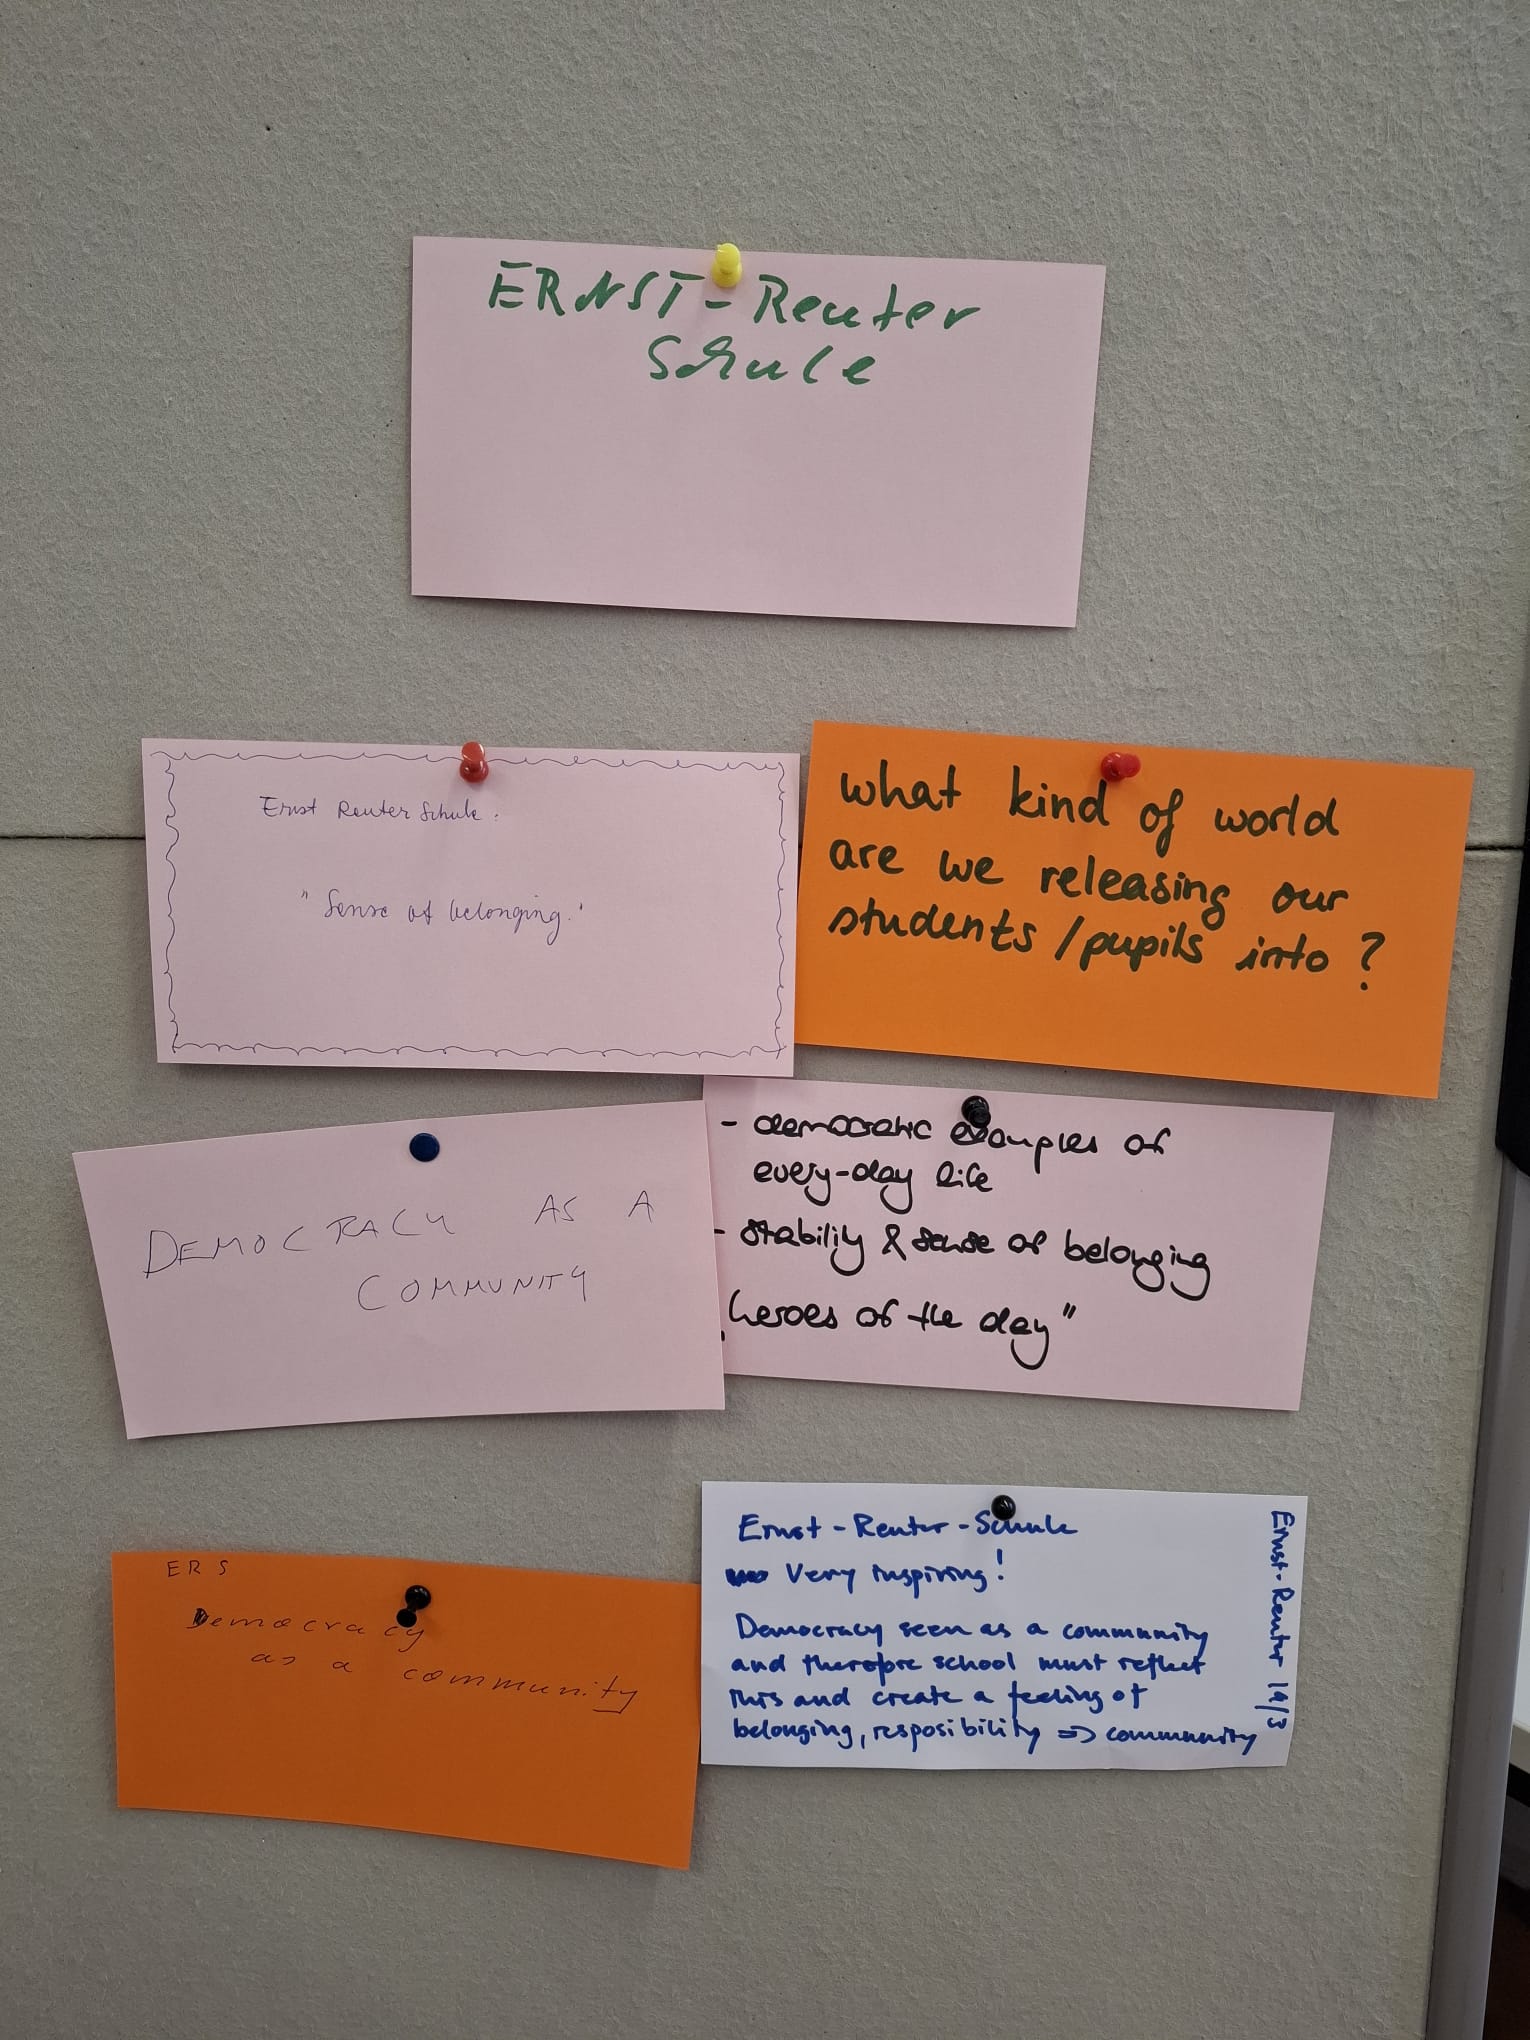 ERNST-Reuter
Schule
Ernst Reuter Schule:
"Sense of belonging."
what kind of world
are we releasing our
students/pupils into?
DEMOCRACY AS A
COMMUNITY
- democratic examples of
every-day life
- stability & sense of belonging
„heroes of the day"
ERS
Democracy
as a community
Ernst-Reuter-Schule
Very inspiring!
Democracy seen as a community
and therefore school must reflect
this and create a feeling of
belonging, resposibility => community
Ernst-Reuter 14/3